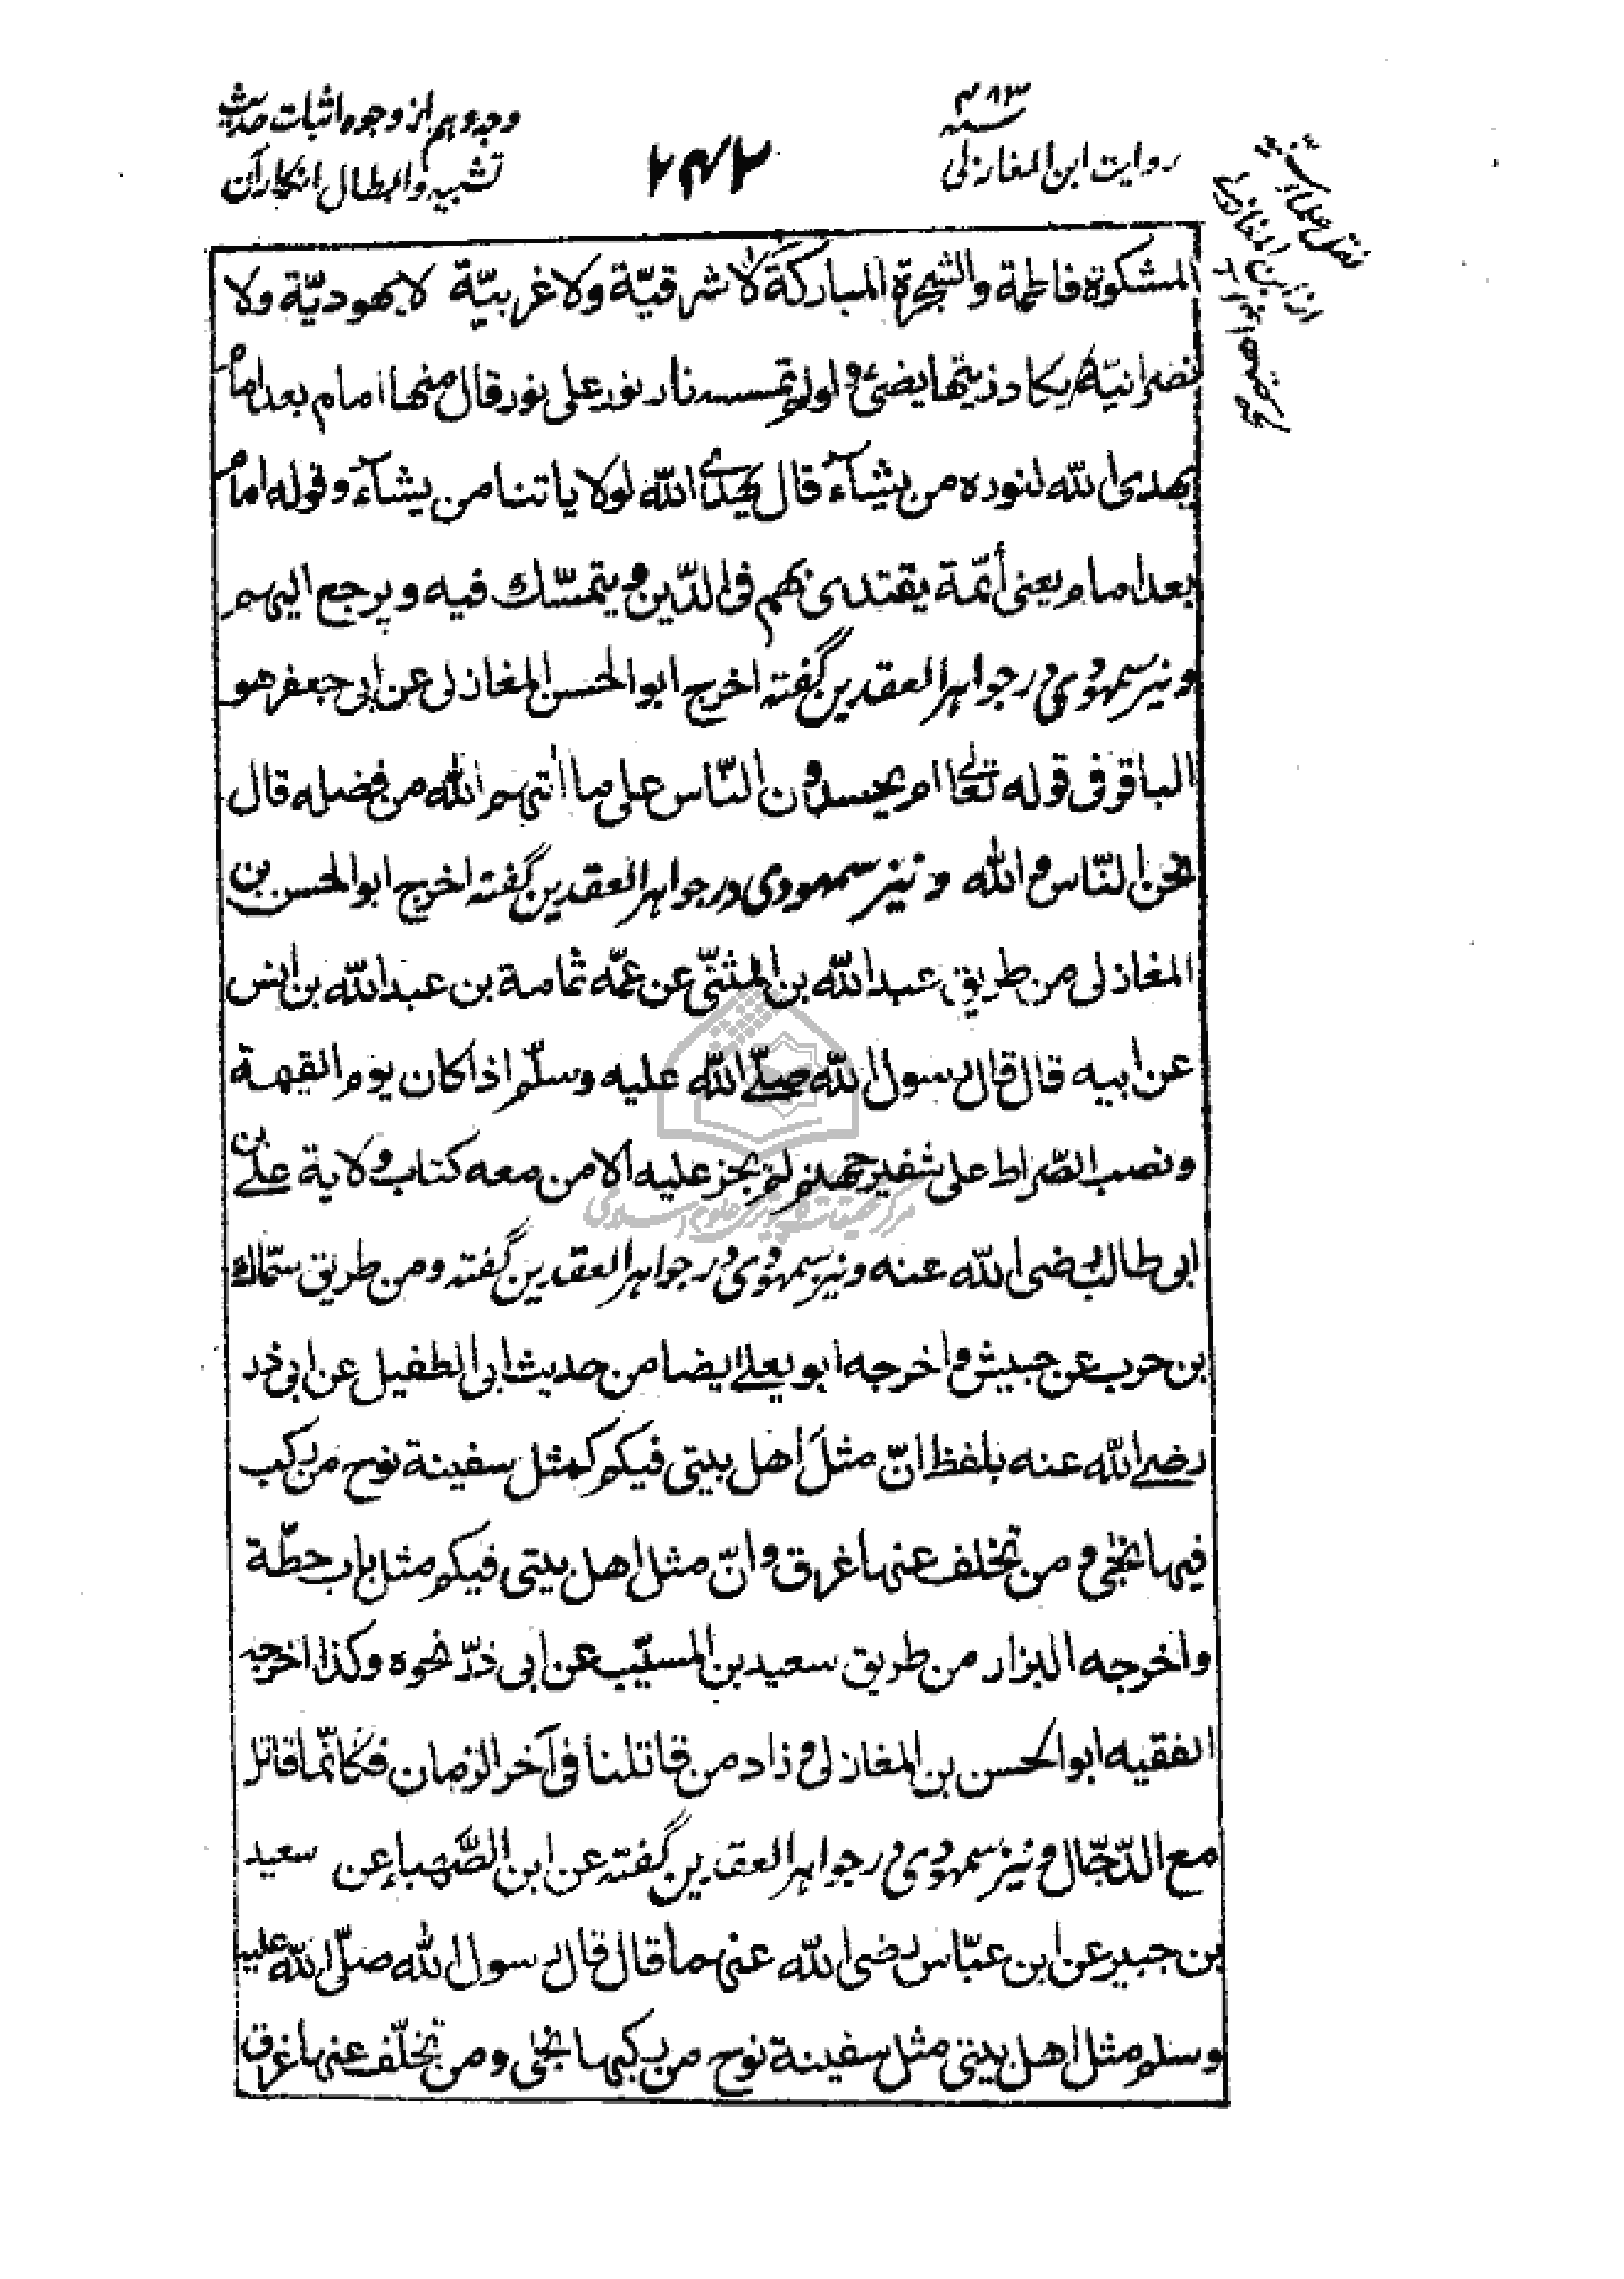 وجه دهم از وجوه اثبات حدیث
تشبیه و ابطال انکار آن
۲۴۲
۴۸۳ سنه
روایت ابن المغازلی
نقل علمای سنت
از ابن المغازلی
المشكوة فاطمة والشجرة المباركة لا شرقيّة ولا غربيّة لا يهوديّة ولا
نصرانيّة يكاد زيتها يضئ ولو لم تمسسه نار نور على نور قال منها امام بعد امام
يهدى الله لنوره من يشآء قال يهدى الله لولاياتنا من يشآء وقوله امام
بعد امام يعنى أئمّة يقتدى بهم فى الدّين ويتمسّك فيه ويرجع اليهم
ونیز سمهودی در جواهر العقدین گفته اخرج ابو الحسن المغازلى عن ابى جعفر هو
الباقر فى قوله تعالى ام يحسدون النّاس على ما اٰتيهم الله من فضله قال
نحن النّاس والله ونیز سمهودی در جواهر العقدین گفته اخرج ابو الحسن بن
المغازلى من طريق عبد الله بن المثنّى عن عمّه ثمامة بن عبد الله بن انس
عن ابيه قال قال رسول الله صلّى الله عليه وسلّم اذا كان يوم القيمة
ونصب الصّراط على شفير جهنم لم يجز عليه الا من معه كتاب ولاية علىّ بن
ابى طالب رضى الله عنه ونیز سمهودی در جواهر العقدین گفته ومن طريق سمّاك
بن حرب عن حبيش واخرجه ابو يعلى ايضا من حديث ابى الطفيل عن ابى ذر
رضى الله عنه بلفظ انّ مثل اهل بيتى فيكم كمثل سفينة نوح من ركب
فيها نجى ومن تخلف عنها غرق وانّ مثل اهل بيتى فيكم مثل باب حطّة
واخرجه البزار من طريق سعيد بن المسيّب عن ابى ذرّ نحوه وكذا اخرجه
الفقيه ابو الحسن بن المغازلى وزاد من قاتلنا فى آخر الزمان فكانّما قاتل
مع الدّجّال ونیز سمهودی در جواهر العقدین گفته عن ابن الصّهباء عن سعيد
بن جبير عن ابن عبّاس رضى الله عنهما قال قال رسول الله صلّى الله عليه
وسلم مثل اهل بيتى مثل سفينة نوح من ركبها نجى ومن تخلّف عنها غرق